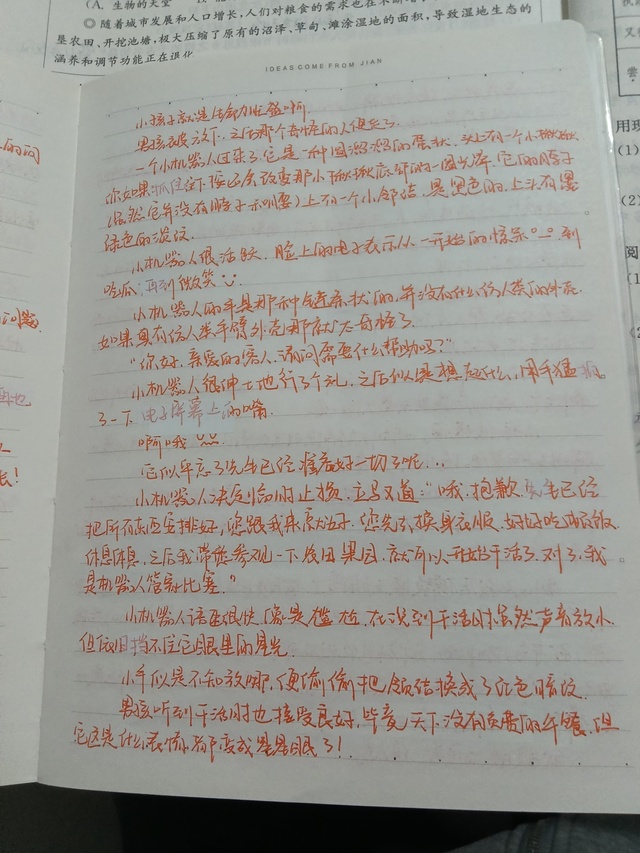 (A. 生物的天堂
◎ 随着城市发展和人口增长，人们对粮食的需求也在不断增
垦农田、开挖池塘，极大压缩了原有的沼泽、草甸、滩涂湿地的面积，导致湿地生态的
涵养和调节功能正在退化
IDEAS COME FROM JIAN
小孩子就是生命力旺盛啊
男孩被放下，之后那个奇怪的人便走了
一个小机器人过来了，它是一种圆滚滚的蛋状，头上有一个小揪揪
你如果抓住往下按还会改变那小揪揪底部的一圈光屏，它的脖子
(虽然它并没有脖子示明要)上有一个小领结，是黑色的，上头有墨
绿色的波纹
小机器人很活跃，脸上的电子表示从一开始的愣呆 到
吃瓜，再到微笑
小机器人的手是那种链条状的，并没有什么仿人类的外壳
如果真有仿人类手臂外壳那就太奇怪了
“你好，亲爱的客人，请问需要什么帮助吗？”
小机器人很绅士地行了个礼，之后似是想起什么，用手猛
了一下电子屏幕上的嘴
啊哦
它似乎忘了先生已经准备好一切了呢...
小机器人决定临时止损，立马又道：“哦，抱歉，先生已经
把所有都安排好，您跟我来就好，您先去换身衣服，好好吃顿饭
休息休息，之后我带您参观一下农田果园，就可以开始干活了，对了，我
是机器人管家比塞。”
小机器人语速很快，像是尴尬，在说到干活时虽然声音放小
但依旧挡不住它眼里的星光
小手似是不知放哪，便偷偷把领结换成了红色暗纹
男孩听到干活时也接受良好，毕竟天下没有免费的午餐，但
它这是什么表情，都变成星星眼了！